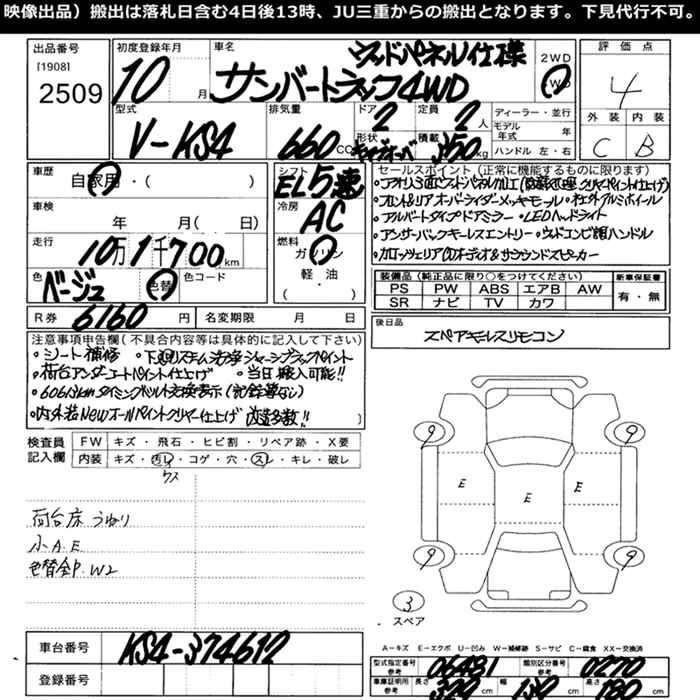 映像出品）搬出は落札日含む4日後13時、JU三重からの搬出となります。下見代行不可。
出品番号
[1908]
2509
初度登録年月
10月
車名
ウッドパネル仕様
サンバートラック4WD
2WD
4WD
評価点
4
外装 内装
C B
型式
V-KS4
排気量
660CC
ドア
2
形状
定員
2人
積載
350kg
ディーラー・並行
モデル年式 年
ハンドル 左・右
車歴
自家用・( )
シフト
EL5速
車検
年 月 ( 日)
冷房
AC
走行
10万1千700km
燃料
ガソリン
軽・油
( )
色
ベージュ
色替
色コード
R券
6160円
名変期限 月 日
セールスポイント（正常に機能するものに限ります）
・フロント&リアオーバーライダーメッキモール・社外アルミホイール
・アルパートタイプドアミラー・LEDヘッドライト
・アンサーバックキーレスエントリー・ウッドコンビ調ハンドル
・カロッツェリアCDオーディオ&サラウンドスピーカー
装備品（純正品に限り○をつけてください）
PS PW ABS エアB AW
SR ナビ TV カワ
新車保証書
有・無
後日品
スペアキーレスリモコン
注意事項申告欄（不具合内容等は具体的に記入して下さい）
・シート補修
・荷台アンダーコートペイント仕上げ・当日搬入可能!!
・内外装Newオールペイントクリヤー仕上げ 改造多数!!
検査員
記入欄
FW キズ・飛石・ヒビ割・リペア跡・X要
内装 キズ・汚レ・コゲ・穴・スレ・キレ・破レ
ウス
荷台床うねり
小A.E
色替全P.W2
9 9
E E E
9 9
3
スペア
A－キズ E－エクボ U－凹み W－補修跡 S－サビ C－腐食 XX－交換済
車台番号
KS4-374612
登録番号
型式指定番号
参考
06481
類別区分番号
参考
0270
車庫証明用
参考
長さ 329cm 幅 139cm 高さ 180cm